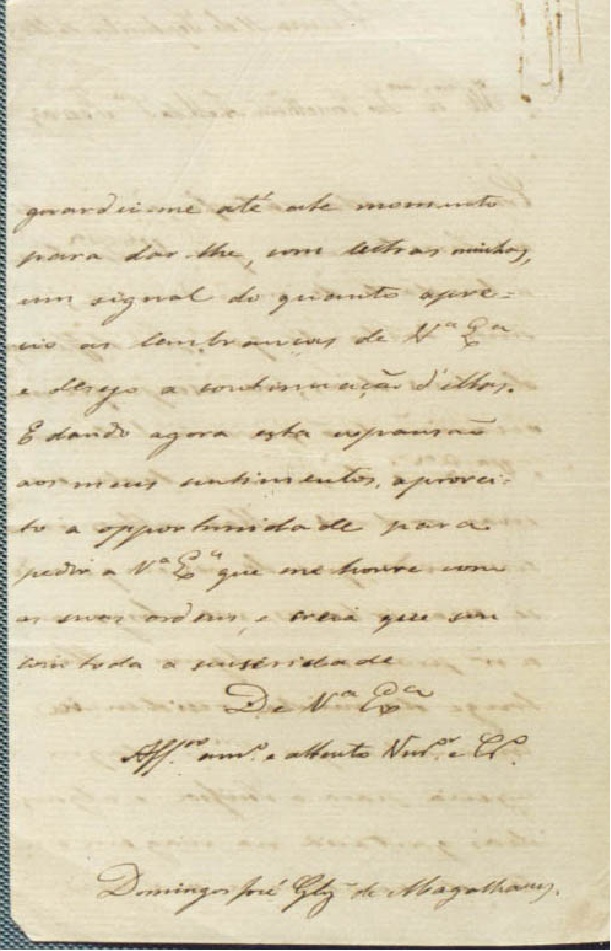 guardei-me até este momento
para dar-lhe, com lettras minhas,
um signal do quanto apre-
cio as lembranças de V.ª Ex.ª
e desejo a continuação d'ellas.
E dando agora esta expansão
aos meus sentimentos, aprovei-
to a opportunidade para
pedir a V.ª Ex.ª que me honre com
as suas ordens, e creia que sou
com toda a sinceridade
De V.ª Ex.ª
Aff.mo am.º e attento Ven.or e Cr.º
Domingos José Glz de Magalhaens.